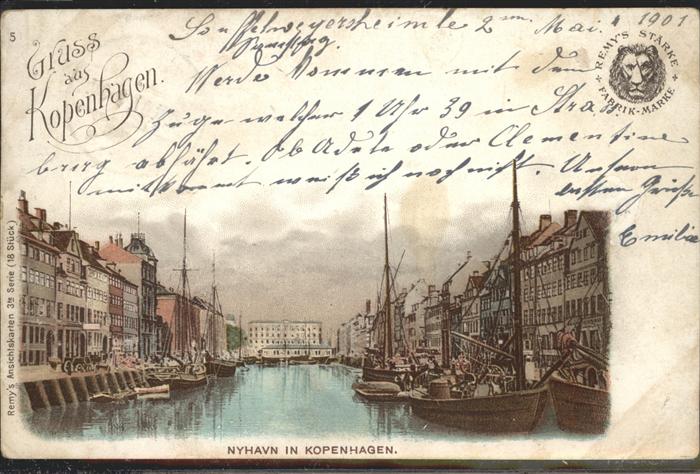 5
Gruss
aus
Kopenhagen.
REMY'S STÄRKE
FABRIK-MARKE
2 Mai. 1901
Werde kommen mit dem
Zuge welcher 1 Uhr 39 in Straß
burg abfährt. Ob Adele oder Clementine
mitkommt weiß ich noch nicht. Unsern
besten Grüße
Emilie
Remy's Ansichtskarten 3te Serie (18 Stück)
NYHAVN IN KOPENHAGEN.